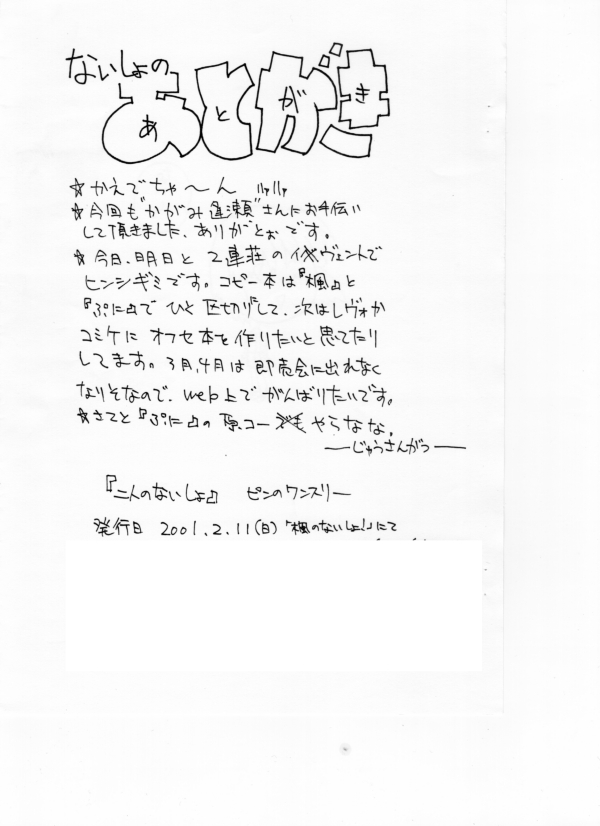 ないしょの
あとがき
☆かえでちゃ〜ん
☆今回も"かがみ逢瀬"さんにお手伝い
して頂きました、ありがとぉです。
☆今日、明日と2連荘のイヴェントで
ヒンシギミです。コピー本は『楓』と
『ぷに』でひと区切りして、次はレヴォか
コミケにオフセ本を作りたいと思てたり
してます。3月、4月は即売会に出れなく
なりそなので、web上でがんばりたいです。
☆さてと『ぷに』の原コーもやらなな。
―じゅうさんがつ―
『二人のないしょ』 ピンのワンスリー
発行日 2001.2.11(日)「楓のないしょ!」にて